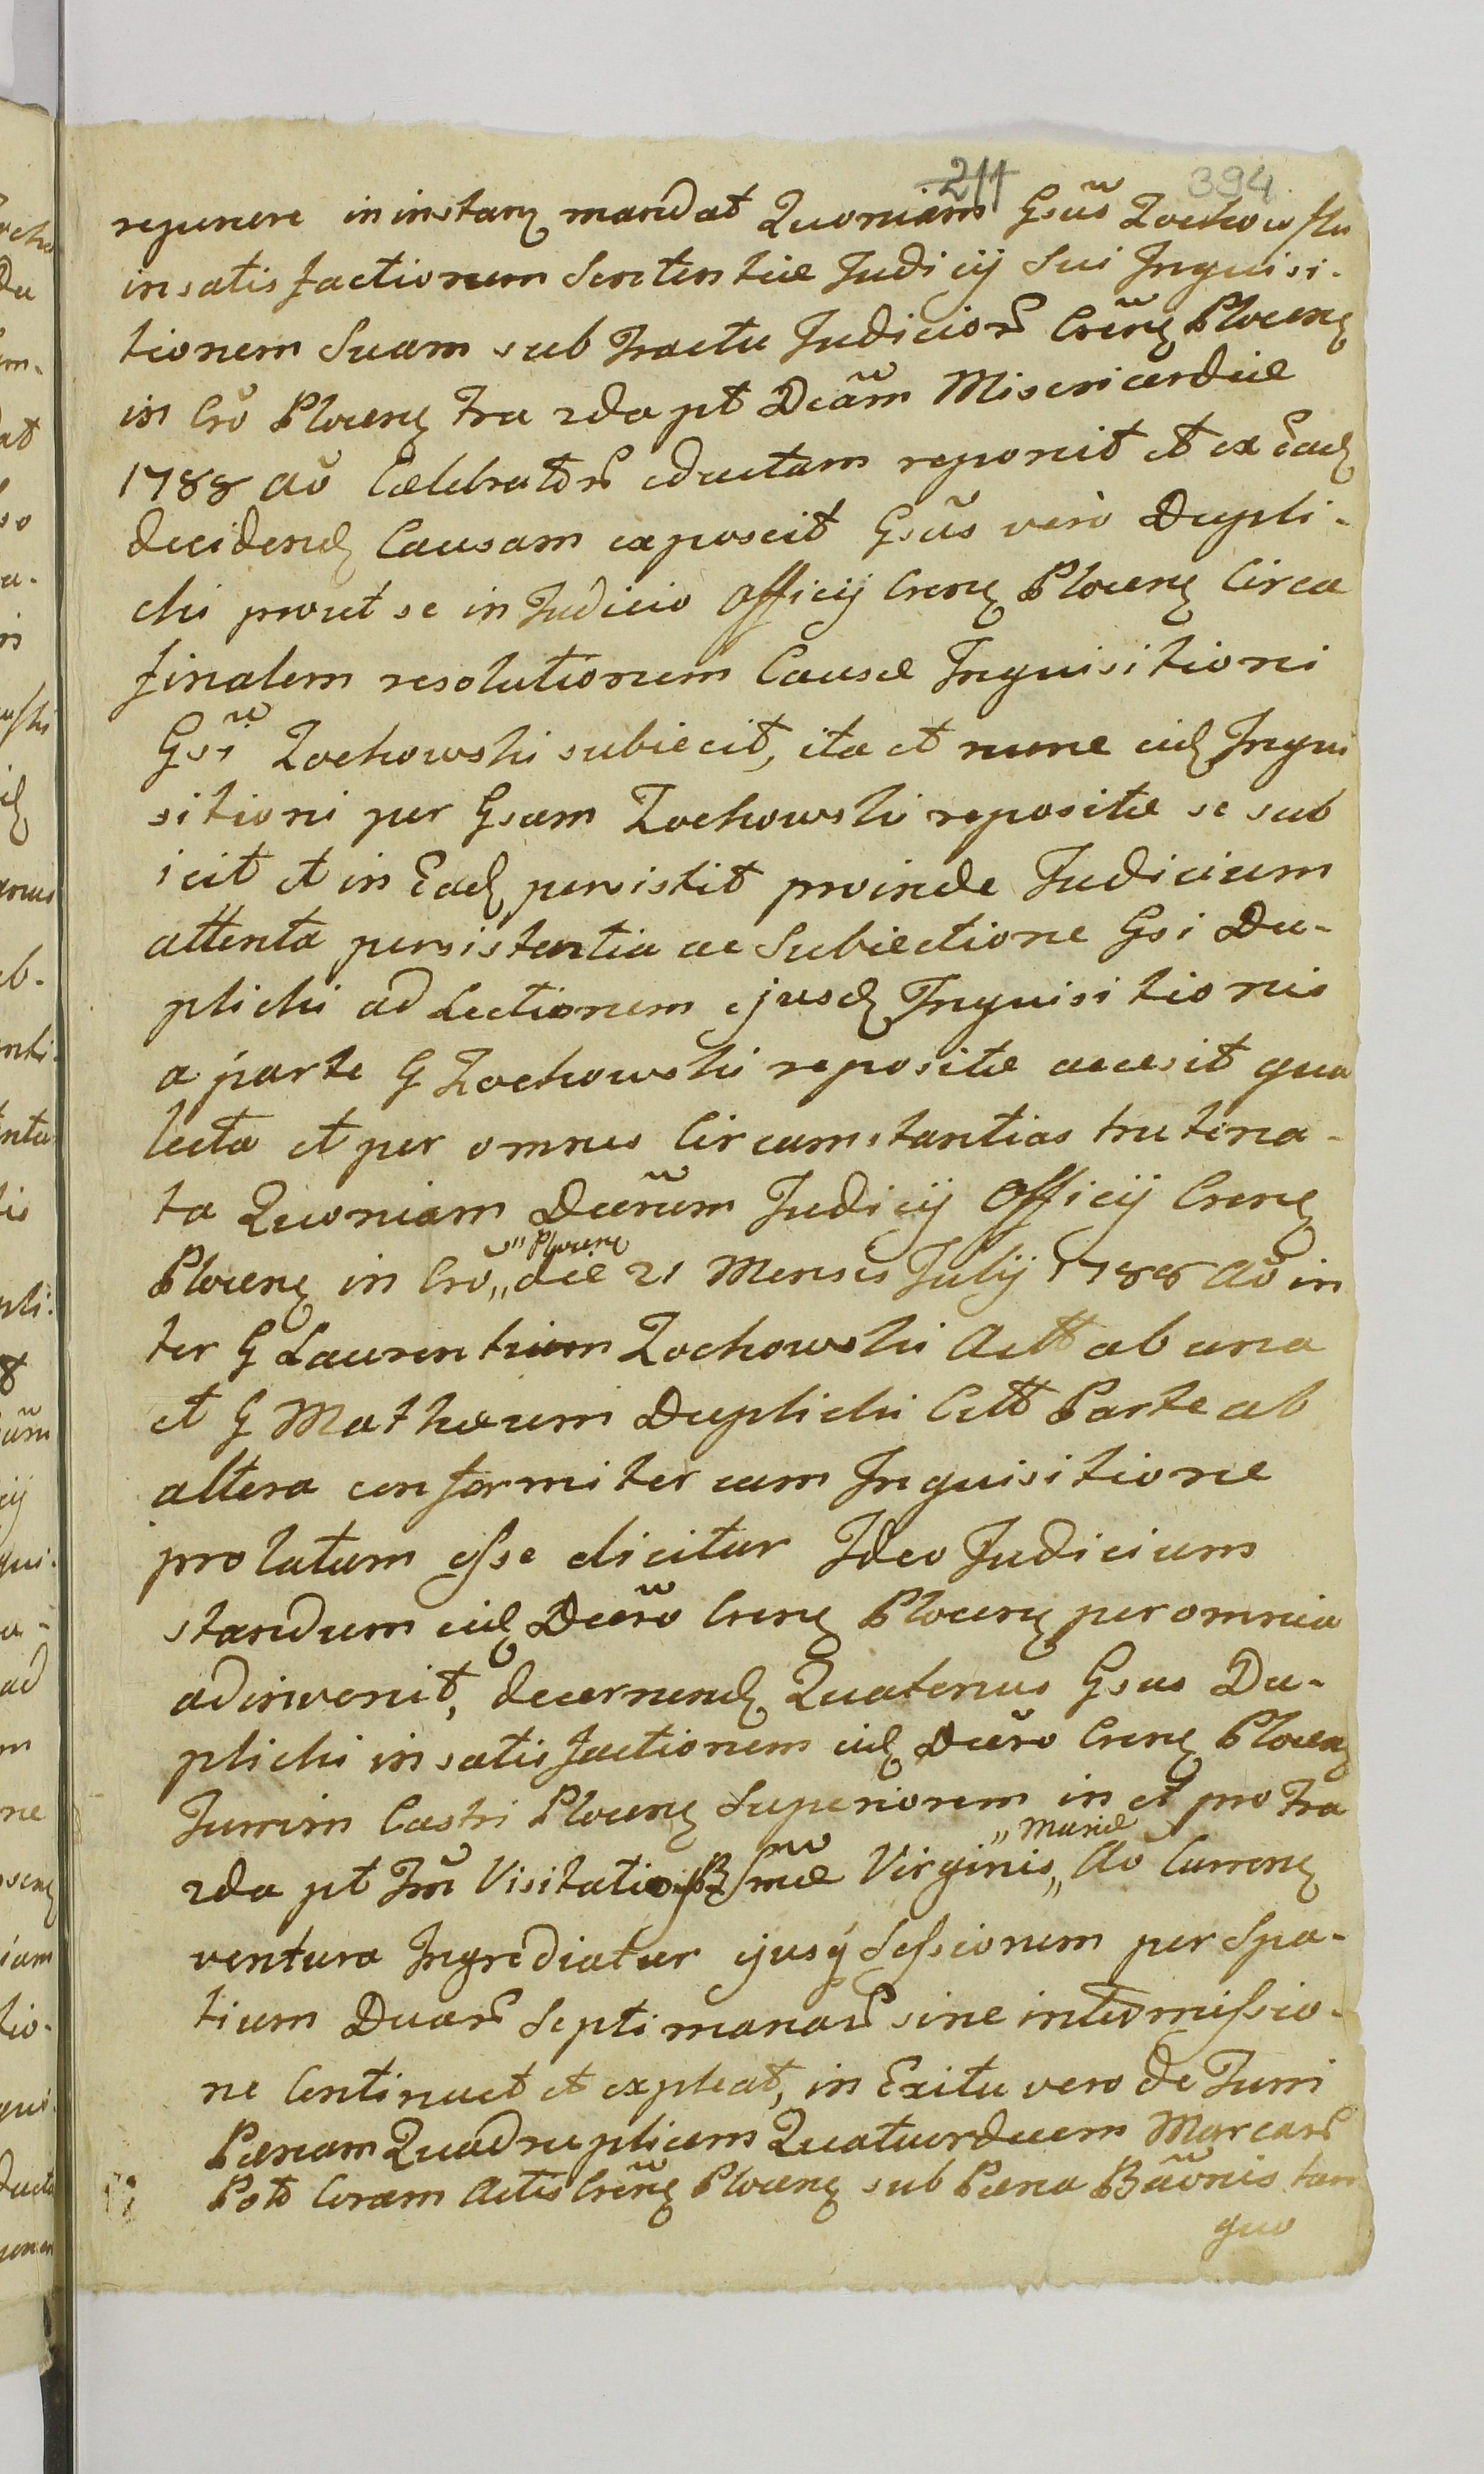 211 394
reponere in instanȝ mandat Quoniam Gsus̃ Zochowski
in satisfactionem Sententiæ Judicij Sui Inquisi-
tionem Suam sub tractu Judicior Cren̄ȝ Plocenȝ
in Cro Plocenȝ Fra 2da pt Dcam̃ Misericordiæ
1788 aõ Celebrator eductam reponit et ex ead
decidend Causam exposcit Gsus̃ vero Dupli-
cki prout se in Judicio Officij Crenȝ Plocenȝ Circa
finalem resolutionem Causæ Inquisitioni
Gsĩ Zochowski subiecit, ita et nunc eid Inqui
sitioni per Gsum Zochowski repositæ se sub
icit et in Ead persistit proinde Judicium
attenta persistentia ac Subiectione Gsi Du-
plicki ad Lectionem ejusd Inquisitionis
a parte G Zochowski repositæ accesit qua
lecta et per omnes Circumstantias trutina-
ta Quoniam Decrum̃ Judicij Officij Crenȝ
Plocenȝ in Crõ „ Plocenȝ „ die 21 Mensis Julij 1788 Aõ in
ter G Laurentium Zochowski Actt ab una
et G Mathæum Duplicki Citt Parte ab
altera conformiter cum Inquisitione
prolatum esse elicitur Ideo Judicium
standum eid Decrõ Crenȝ Plocenȝ per omnia
adinvenit, decernend Quatenus Gsus Du-
plicki in satisfactionem eid Decrõ Crenȝ Plocenȝ
Turrim Castri Plocenȝ Superiorem in et pro Fra
2da pt Fm̃ Visitationis B mæ Virginis „ Mariæ „ Aõ Currenȝ
ventura Ingrediatur ejusq Sessionem per Spa-
tium Duar Septimanar sine intermissio-
ne Continuet et expleat, in Exitu vero de Turri
Pænam Quadruplicem Quatuordecem Marcar
Pot Coram Actis Cren̄ȝ Plocenȝ sub Pæna Bãonis tan
quo